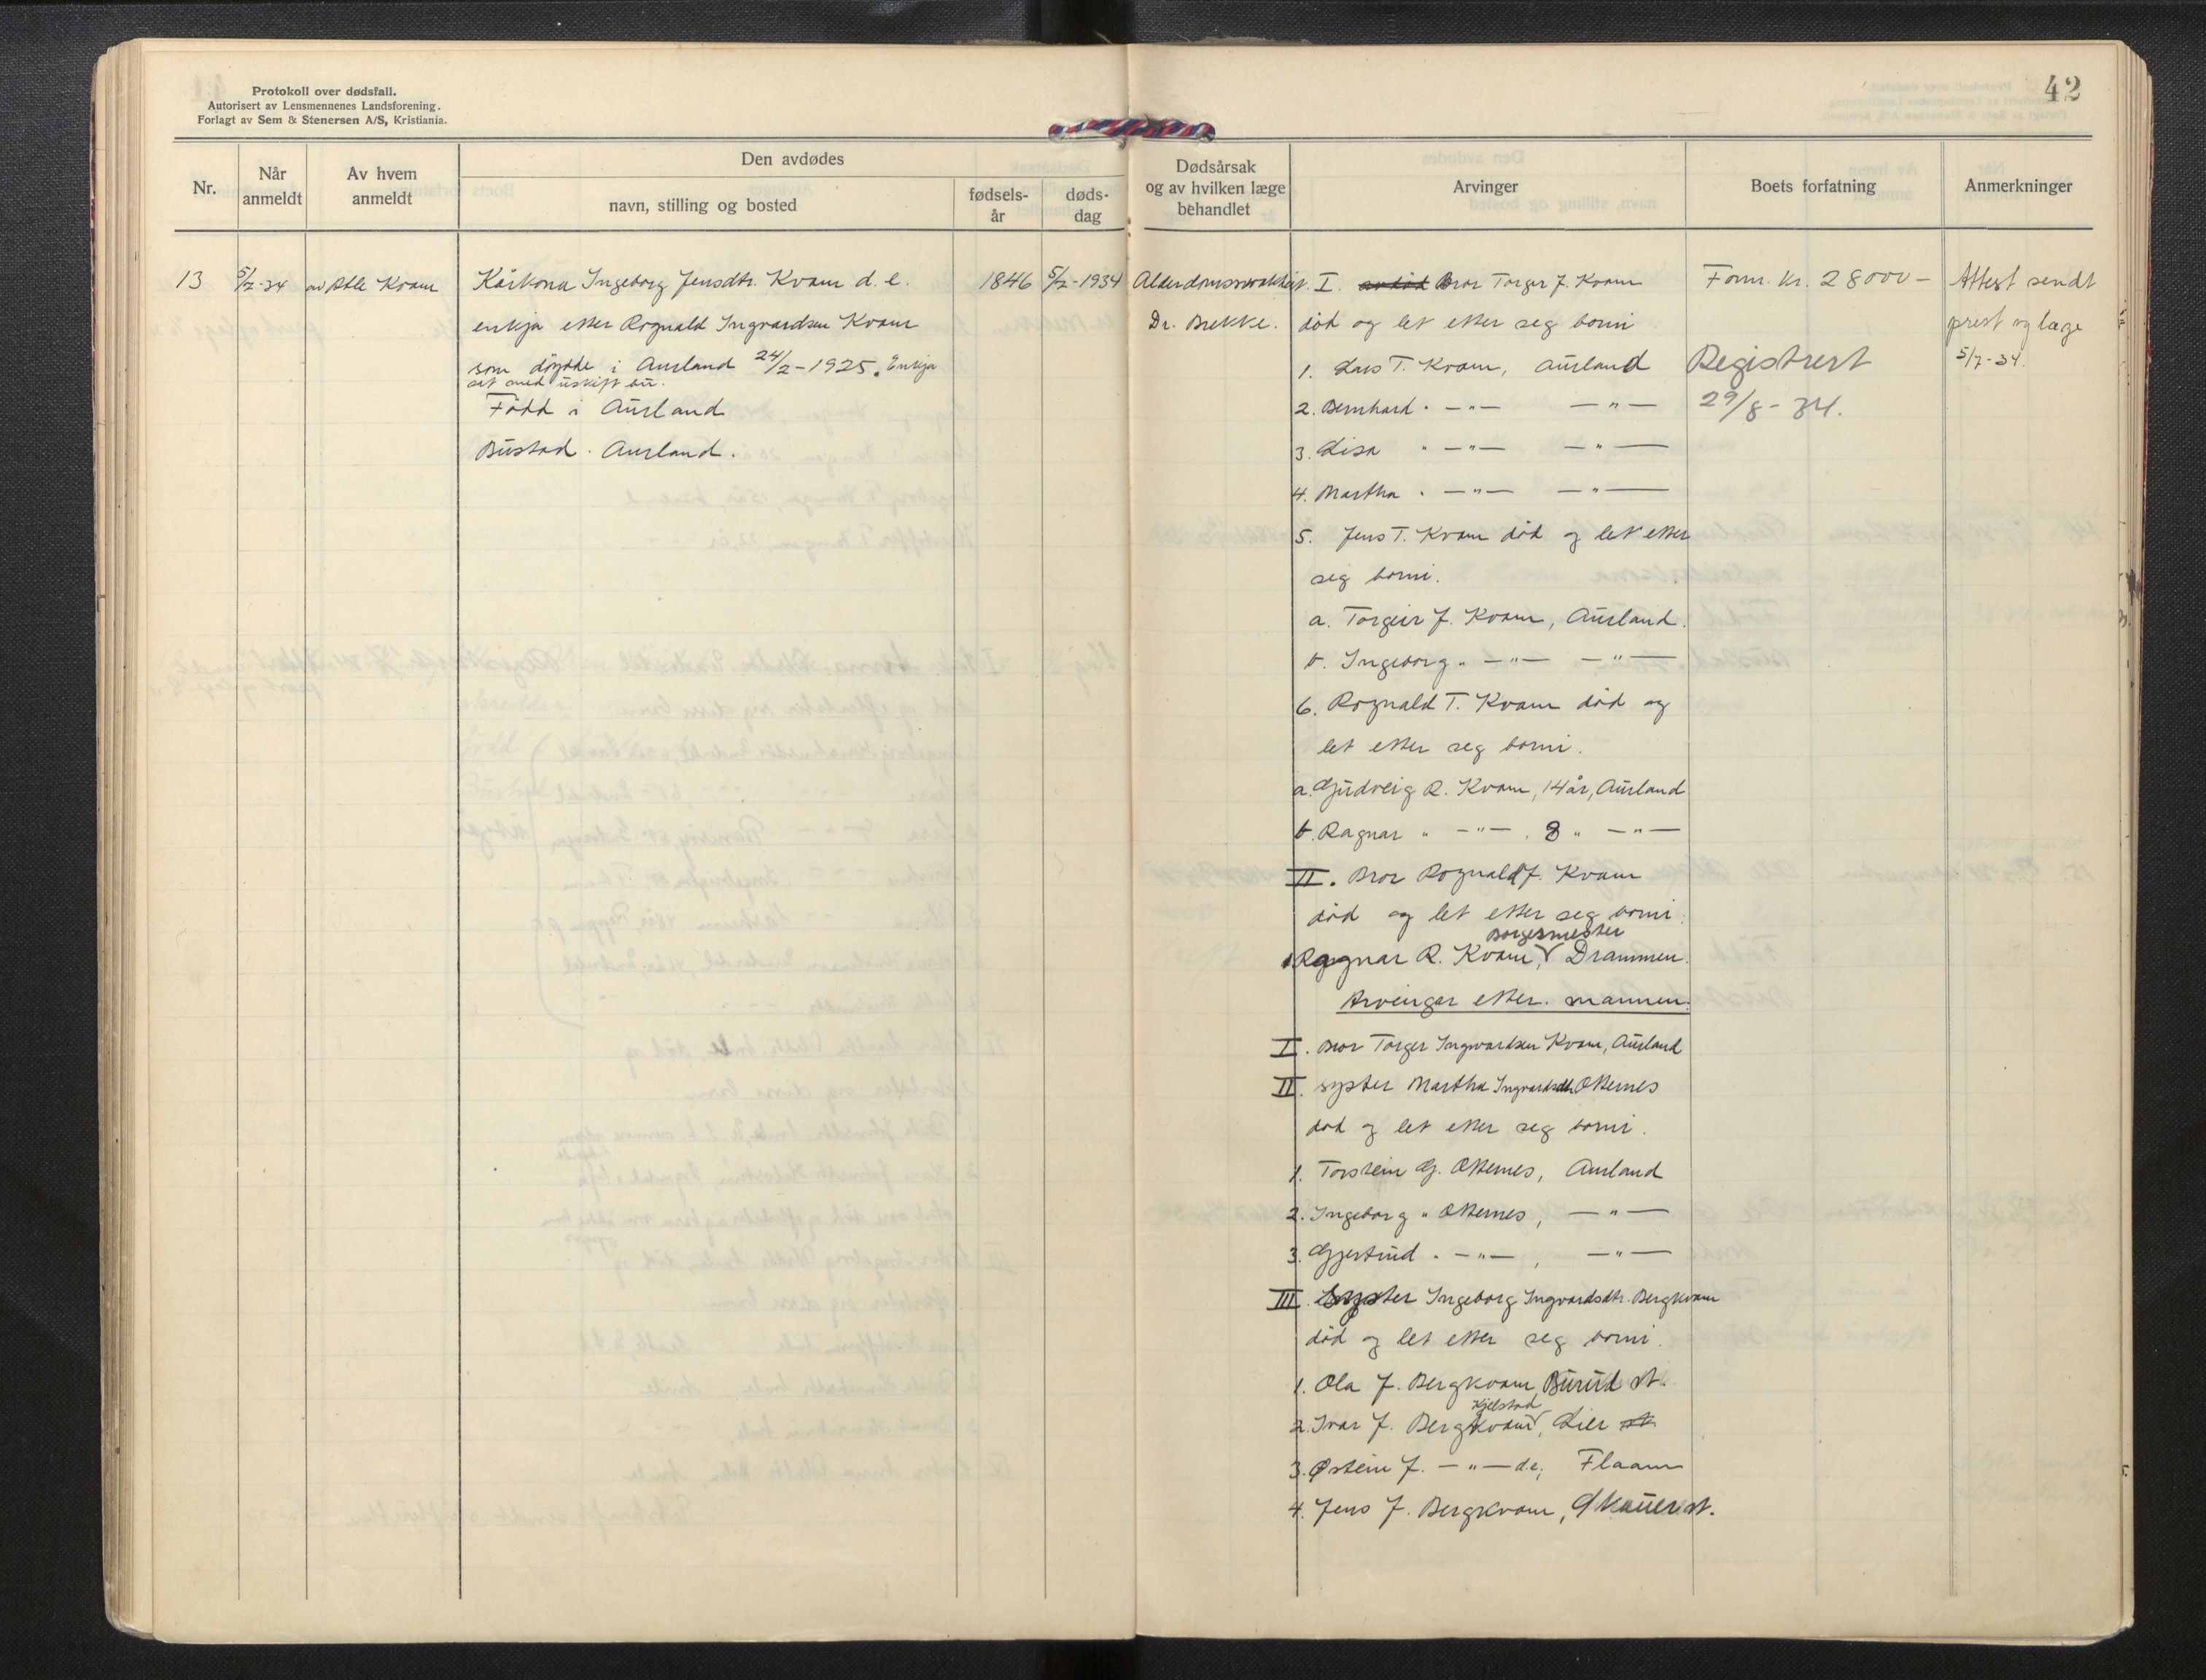 Protokoll over dødsfall.
Autorisert av Lensmennenes Landsforening.
Forlagt av Sem & Stenersen A/S, Kristiania.
42
Nr.
Når anmeldt
Av hvem anmeldt
Den avdødes
navn, stilling og bosted
fødsels-år
døds-dag
Dødsårsak og av hvilken læge behandlet
Arvinger
Boets forfatning
Anmerkninger
13
5/2-34
av Atle Kvam
Kårkona Ingeborg Jensdtr. Kvam d. e.
enkja etter Rognald Ingvardsen Kvam
som døydde i Aurland 24/2-1925. Enkja
set med uskift bu.
Född i Aurland
Bustad. Aurland.
1846
5/2-1934
Dr. Brekke.
I. avdöd Bror Torger J. Kvam
död og let etter seg borni
1. Lars T. Kvam, Aurland
2. Bernhard " —"— —"—
3. Lisa " —"— —"—
4. Martha " —"— —"—
5. Jens T. Kvam död og let etter
seg borni.
a. Torgeir J. Kvam, Aurland.
b. Ingeborg " —"— —"—
6. Rognald T. Kvam död og
let etter seg borni.
a. Gudveig R. Kvam, 14 år, Aurland
b. Ragnar " —"—, 8 " —"—
II. Bror Rognald J. Kvam
död og let etter seg borni.
Borgermester
1 Ragnar R. Kvam, Drammen.
Arvingar etter mannen.
I. Bror Torger Ingvardsen Kvam, Aurland
II. syster Martha Ingvardsdtr. Otternes
död og let etter seg borni.
1. Torstein G. Otternes, Aurland
2. Ingeborg " Otternes, —"—
3. Gjertrud " —"—, —"—
III. Syster Ingeborg Ingvardsdtr. Bergkvam
död og let etter seg borni.
1. Ola J. Bergkvam, Burud st.
Kjelstad
2. Ivar J. Bergkvam, Lier st.
3. Østein J. —"— d.e., Flaam
4. Jens J. Bergkvam, Skauer st.
Form. kr. 28000-
Registrert
29/8-34.
Attest sendt
prest og læge
5/7-34.